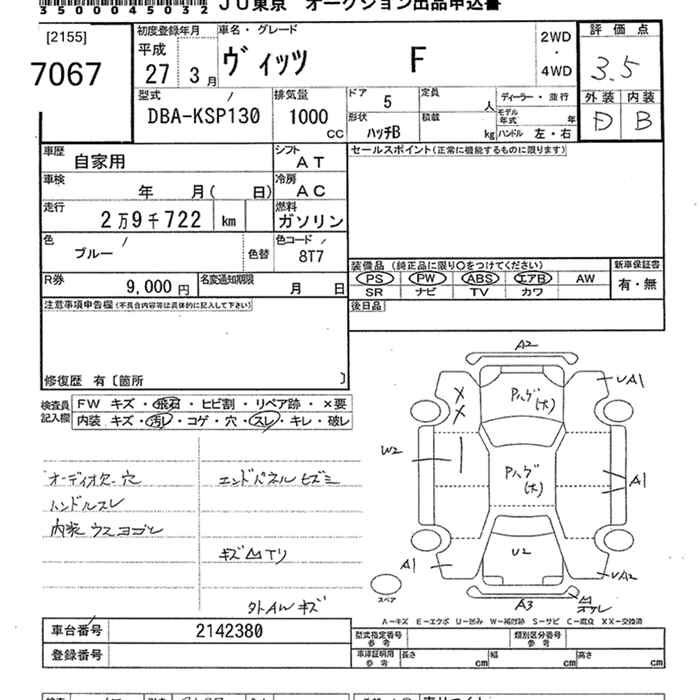 35000045032 JU東京 オークション出品申込書
[2155]
7067
初度登録年月 車名・グレード
平成 27年 3月 ヴィッツ F
2WD
・
4WD
評価点
3.5
外装 内装
D B
型式 排気量
DBA-KSP130 1000 CC
ドア 5 定員 人
形状 ハッチB 積載 kg
ディーラー・並行
モデル年式 年
ハンドル 左・右
車歴 自家用
シフト AT
車検 年 月( 日)
冷房 AC
走行 2万9千722 km
燃料 ガソリン
色 ブルー 色替
色コード 8T7
R券 9,000円
名変通知期限 月 日
セールスポイント(正常に機能するものに限ります)
装備品(純正品に限り○をつけてください)
PS PW ABS エアB AW
SR ナビ TV カワ
新車保証書
有・無
後日品
注意事項申告欄(不具合内容等は具体的に記入して下さい)
修復歴 有〔箇所 〕
検査員記入欄
FW キズ・飛石・ヒビ割・リペア跡・×要
内装 キズ・汚レ・コゲ・穴・スレ・キレ・破レ
オーディオ穴
ハンドルスレ
内装ウスヨゴレ
エンドパネルヒズミ
外AWキズ
A2
UA1
Pハゲ(大)
X
X
W2
Pハゲ(大)
A1
U2
A1
UA2
スペア
A3
A-キズ E-エクボ U-凹み W-補修跡 S-サビ C-腐食 XX-交換済
車台番号 2142380
登録番号
型式指定番号 参考
類別区分番号 参考
車庫証明用 参考
長さ cm 幅 cm 高さ cm